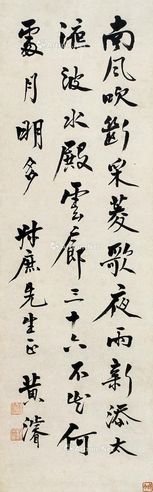 南風吹斷采菱歌夜雨新添太
液波水殿雲廊三十六不知何
處月明多
先生正 黃濬